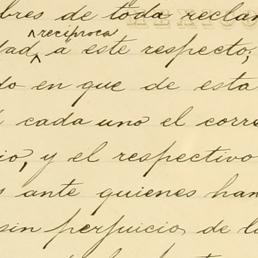 bres de toda reclam
reciproca
dad, a este respecto,
do en que de esta
cada uno el corre
io, y el respectivo
s ante quienes han
sin perjuicio de la